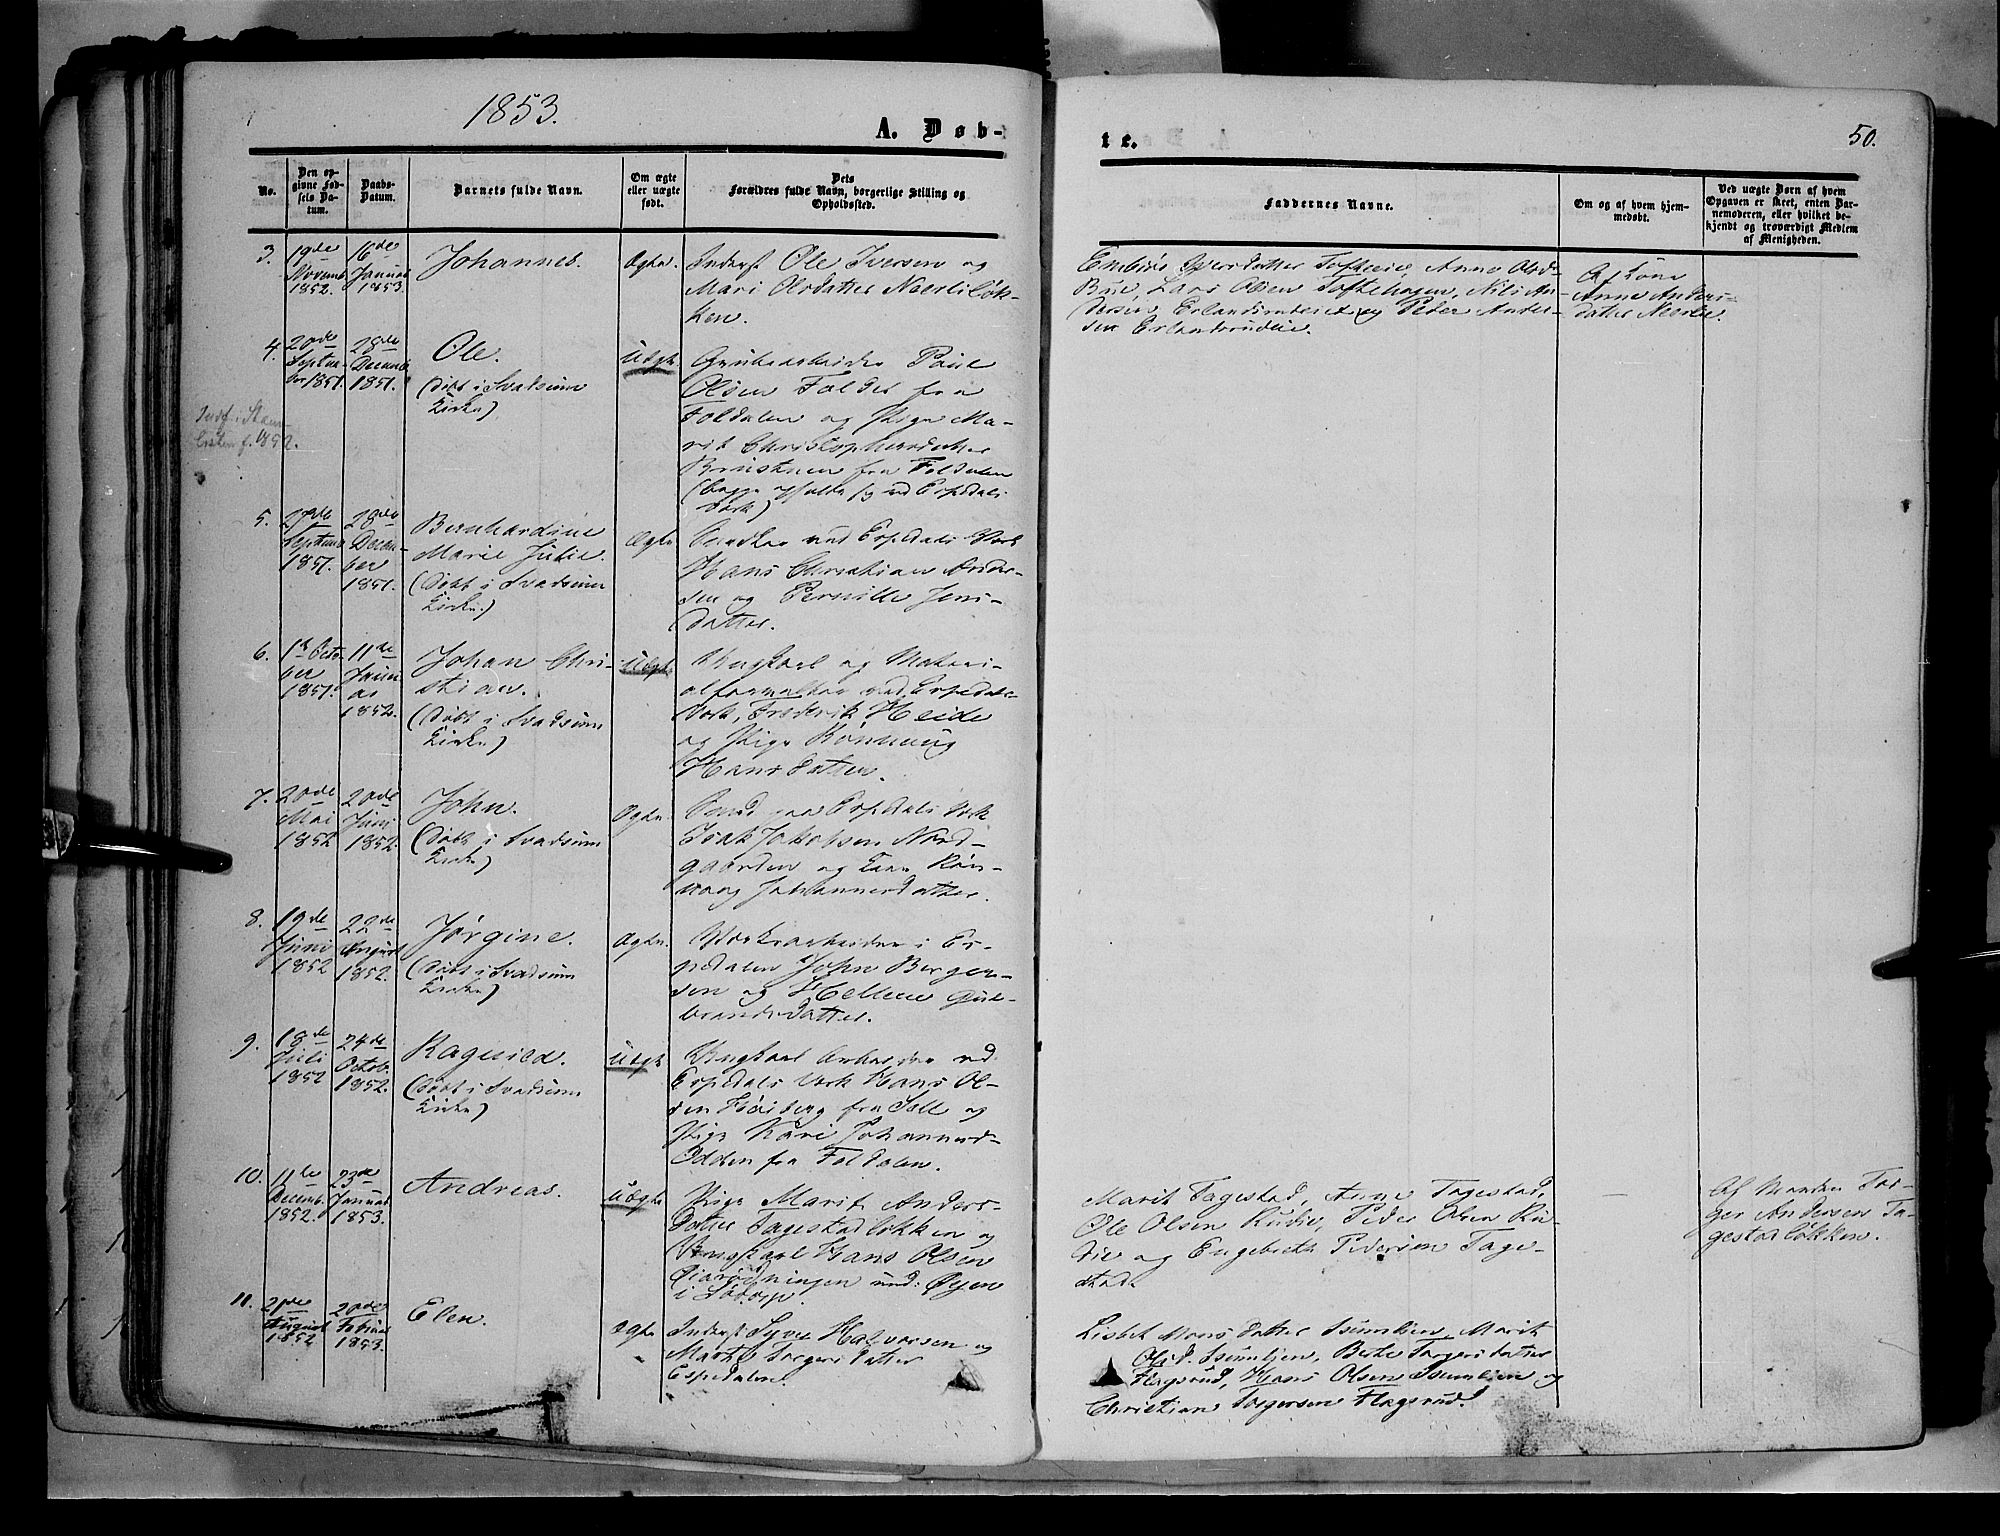 1853.
A. Døb-
te.
50.
No.
Den op-
givne Fød-
sels Da-
tum.
Daabs-
Datum.
Barnets fulde Navn.
Om ægte
eller uægte
født.
Dets
Forældres fulde Navn, borgerlige Stilling og
Opholdssted.
Faddernes Navne.
Om og af hvem hjem-
medøbt.
Ved uægte Børn af hvem
Opgaven er skeet, enten Bar-
nemoderen, eller hvilket be-
kjendt og troværdigt Medlem
af Menigheden.
3.
19de
Novemb.
1852.
16de
Januar
1853.
Johannes.
Ægte.
Inderst Ole Iversen og
Mari Olsdatter Neerliløk-
ken.
Anne Olsd.
Lars Olsen Toftehagen, Nils An-
dersen og Peder Ander-
sen
Anne Anders-
datter Neerlie.
4.
20de
Septem-
ber 1851.
28de
Decemb
1851.
Ole.
(Døbt i Svadsum
Kirke)
Uægte
Grubearbeider Paul
Olsen Foldal fra
Foldalen og Pige Ma-
rit Christophersdatter
fra Foldalen
(begge ved Espedals
Værk)
5.
Septemb
1851.
28de
Decem-
ber
1851.
Bernhardine
Marie Julie.
(Døbt i Svadsum
Kirke.)
Ægte
ved Espedals Værk
Hans Christian Ander-
sen og Pernille Jens-
datter.
6.
1ste Octo-
ber
1851.
11de
Janu-
ar
1852.
Johan Chri-
stian.
(Døbt i Svadsum
Kirke)
Uægte
Ungkarl og Materi-
alforvalter ved Espedals
Værk, Frederik Heide
og Pige Rønnaug
Hansdatter.
7.
20de
Mai
1852
20de
Juni
1852.
John.
(Døbt i Svadsum
Kirke)
Ægte.
Smed paa Espedals Værk
Isak Jakobsen Nord-
gaarden og Kone Røn-
naug Johannesdatter.
8.
19de
Juni
1852
22de
August
1852.
Jørgine.
(Døbt i Svadsum
Kirke)
Ægte.
Værksarbeider i Es-
pedalen John Bergen-
sen og Hellene Gud-
brandsdatter.
9.
18de
Juli
1852
24de
Octob.
1852.
Ragnild.
(Døbt i Svadsum
Kirke)
Uægte
Ungkarl Arbeider ved
Espedals Værk Hans Ol-
sen fra og
Pige Kari Johannesd.
Odden fra Foldalen.
10.
11te
Decemb.
1852.
23de
Januar
1853.
Andreas.
Uægte
Pige Marit Anders-
datter Tagestadløkken og
Ungkarl Hans Olsen
und: Øyen
i Sødorp.
Marit Tagestad, Anne Tagestad,
Ole Olsen Rudie, Peder Olsen Ru-
die og Engebreth Pedersen Tage-
stad.
Af Manden Tor-
ger Andersen Ta-
gestadløkken.
11.
21de
August
1852
20de
Februar
1853.
Elen.
Ægte
Inderst Syver Halvorsen og
Marte Torgersdatter
Espedalen.
Lisbet Hansdatter Marit
Olsd. Berte Torgersdatter
Flagsrud, Hans Olsen og
Christian Torgersen Flagsrud.